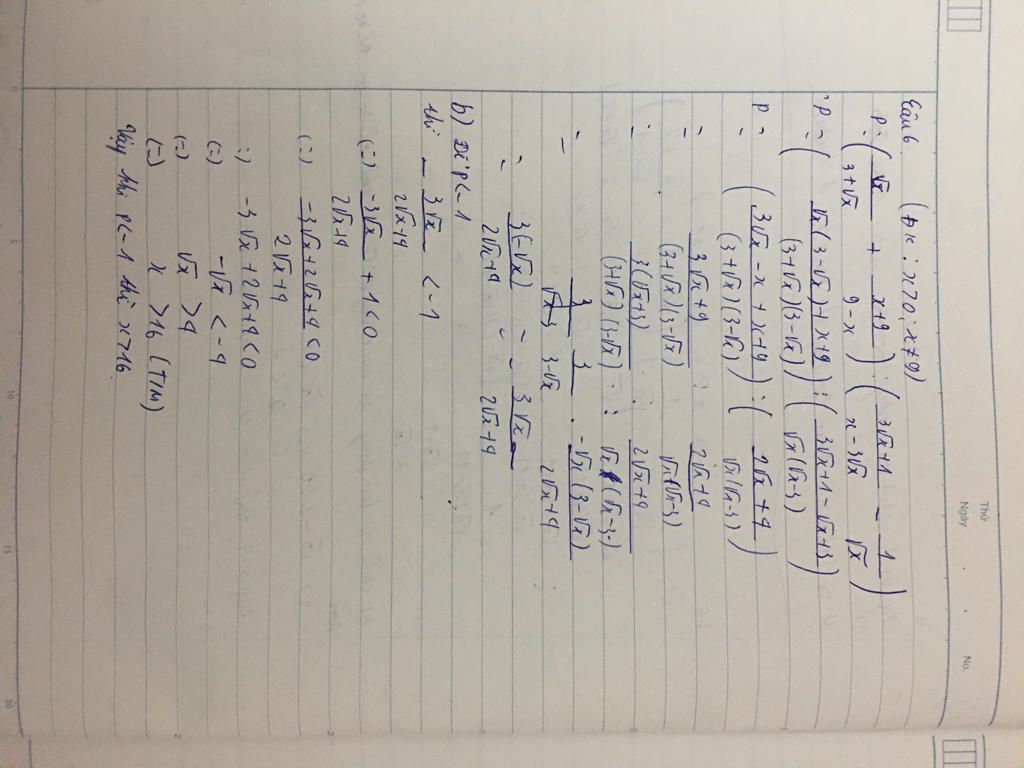 Thứ
Ngày . . No.
Câu 6 (ĐK: x > 0; x ≠ 9)
P = (√x/(3+√x) + (x+9)/(9-x)) : ((3√x+1)/(x-3√x) - 1/√x)
P = (√x(3-√x)+x+9)/((3+√x)(3-√x)) : ((3√x+1-√x+3)/(√x(√x-3)))
P = ((3√x-x+x+9)/((3+√x)(3-√x))) : ((2√x+4)/(√x(√x-3)))
= (3√x+9)/((3+√x)(3-√x)) : (2√x+4)/(√x(√x-3))
= 3(√x+3)/((3+√x)(3-√x)) : (2√x+4)/(√x(√x-3))
= 3/(3-√x) . -√x(3-√x)/(2√x+4)
= 3(-√x)/(2√x+4) = -3√x/(2√x+4)
b) Để P<-1
thì -3√x/(2√x+4) < -1
(=) -3√x/(2√x+4) + 1 < 0
(=) (-3√x+2√x+4)/(2√x+4) < 0
=) -3√x+2√x+4 < 0
(=) -√x < -4
(=) √x > 4
(=) x > 16 (T/M)
Vậy khi P<-1 thì x>16